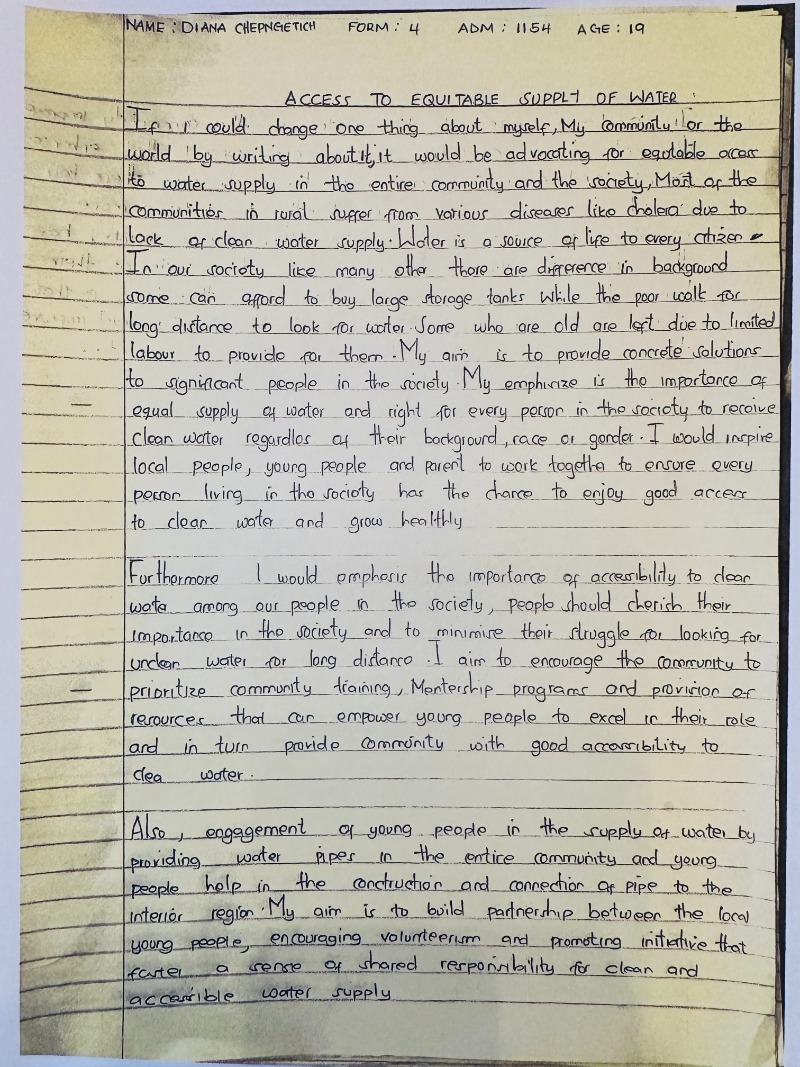 NAME : DIANA CHEPNGETICH FORM : 4 ADM : 1154 AGE : 19
ACCESS TO EQUITABLE SUPPLY OF WATER
If I could change one thing about myself, My community or the
world by writing about it, it would be advocating for equtable access
to water supply in the entire community and the society, Most of the
communities in rural suffer from various diseases like cholera due to
lack of clean water supply. Water is a source of life to every citizen
In our society like many othe there are difference in background
some can afford to buy large storage tanks While the poor walk for
long distance to look for water. Some who are old are left due to limited
labour to provide for them. My aim is to provide concrete solutions
to significant people in the society. My emphisize is the importance of
equal supply of water and right for every person in the society to receive
clean water regardles of their background, race or gender. I would inspire
local people, young people and parent to work togethe to ensure every
person living in the society has the chance to enjoy good access
to clean water and grow healthly
Furthermore I would emphasis the importance of accessibility to clear
wate among our people in the society, people should cherish their
importance in the society and to minimise their struggle for looking for
unclean water for long distance. I aim to encourage the community to
prioritize community training, Mentership programs and provision of
resources that can empower young people to excel in their role
and in turn provide community with good accessibility to
clea water.
Also, engagement of young people in the supply of water by
providing water pipes in the entire community and young
people help in the construction and connection of pipe to the
interior region. My aim is to build partnership between the local
young people, encouraging volunteerism and promoting initiative that
foster a sense of shared responsibility for clean and
accessible water supply